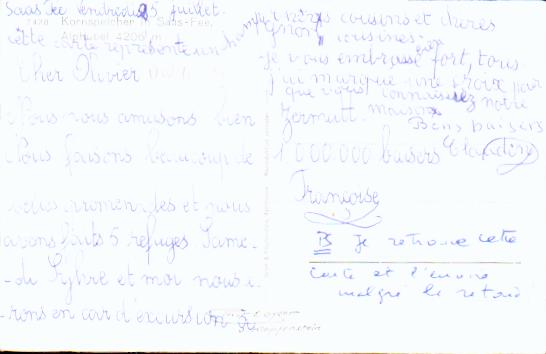 Saas Fee vendredi 25 juillet.
7420 Kornspeicher Saas-Fee,
Alphubel 4206 m
cette carte représente un
Cher Olivier
Nous nous amusons bien
Nous faisons beaucoup de
belles promenades et nous
avons faits 5 refuges Same-
-di et moi nous i-
-rons en car d'excursion à
cousins et chères
cousines.
Je vous embrasse très fort, tous.
J'ai marqué une croix par
que vous connaissez notre
Zermatt. maison
Bons baisers
1 000 000 baisers Claudine
Françoise
Je retrouve cette
carte et l'envoie
malgré le retard